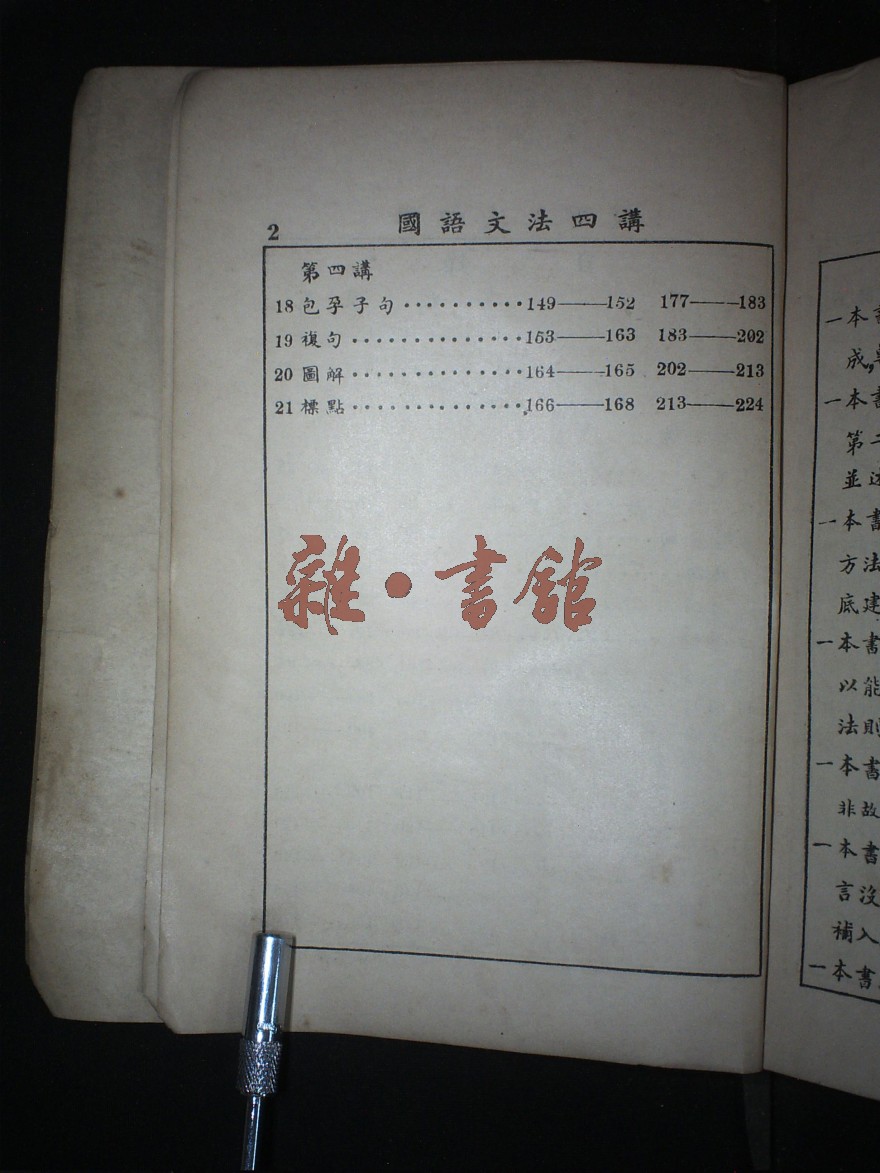 2 國語文法四講
第四講
18 包孕子句··········149——152 177——183
19 複句··············153——163 183——202
20 圖解··············164——165 202——213
21 標點··············166——168 213——224
雜•書館
一本
成,
一本書
第二
並述
一本書
方法
底建
一本書
以能
法則
一本書
非故
一本書
言沒
補入
一本書